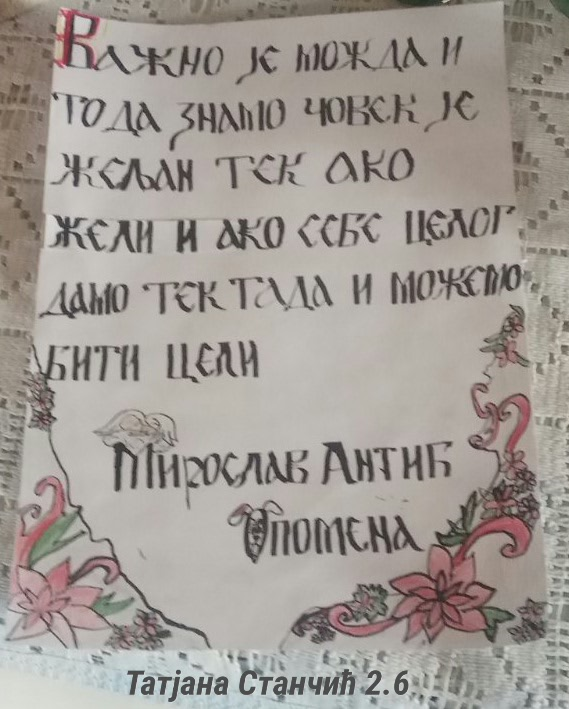 Важно је можда и
то да знамо човек је
жељан тек ако
жели и ако себе целог
дамо тек тада и можемо
бити цели
Мирослав Антић
Опомена
Татјана Станчић 2.6